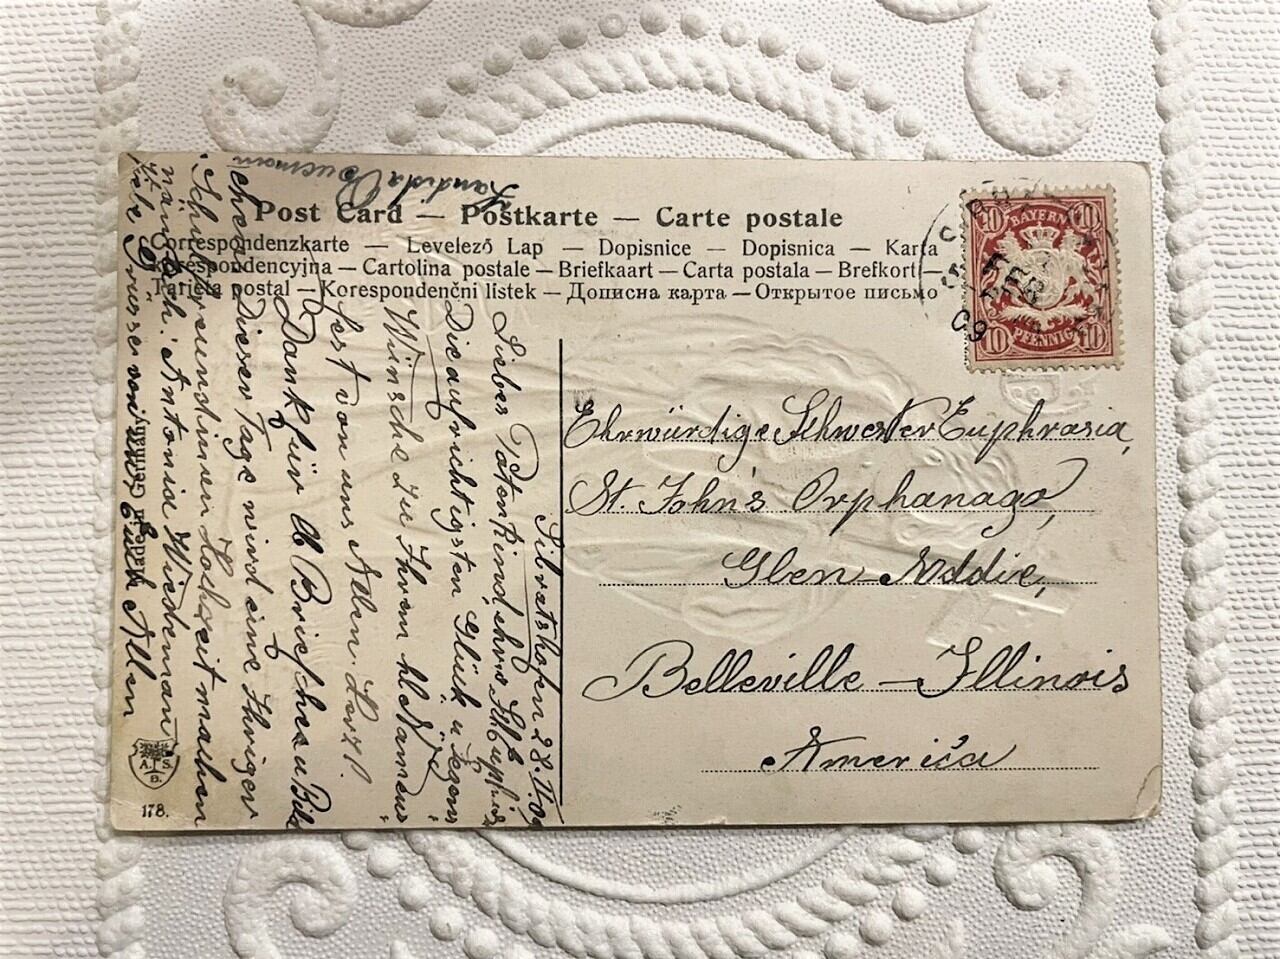 Post Card — Postkarte — Carte postale
Correspondenzkarte — Levelező Lap — Dopisnice — Dopisnica — Karta
korespondencyjna — Cartolina postale — Briefkaart — Carta postala — Brefkort —
Tarjeta postal — Korespondenčni listek — Дописна карта — Открытое письмо
BAYERN
10 10
10 10
PFENNIG
FEB
09
Ehrwürdige Schwester Euphrasia,
St. John's Orphanage,
Glen Addie,
Belleville — Illinois
America
28. II. 09
Liebes Patenkind
Die aufrichtigsten Glück u Segens
Wünsche zu Ihrem hl Namens
fest von uns Allen. Herzl.
Dank für lb Briefchen u Bild
Dieser Tage wird eine Ihrigen
Schulfreundinnen Hochzeit machen
nämlich: Antonia Wiedeman
viele Grüsse von uns Allen
Made in Germany
A. S.
B.
178.